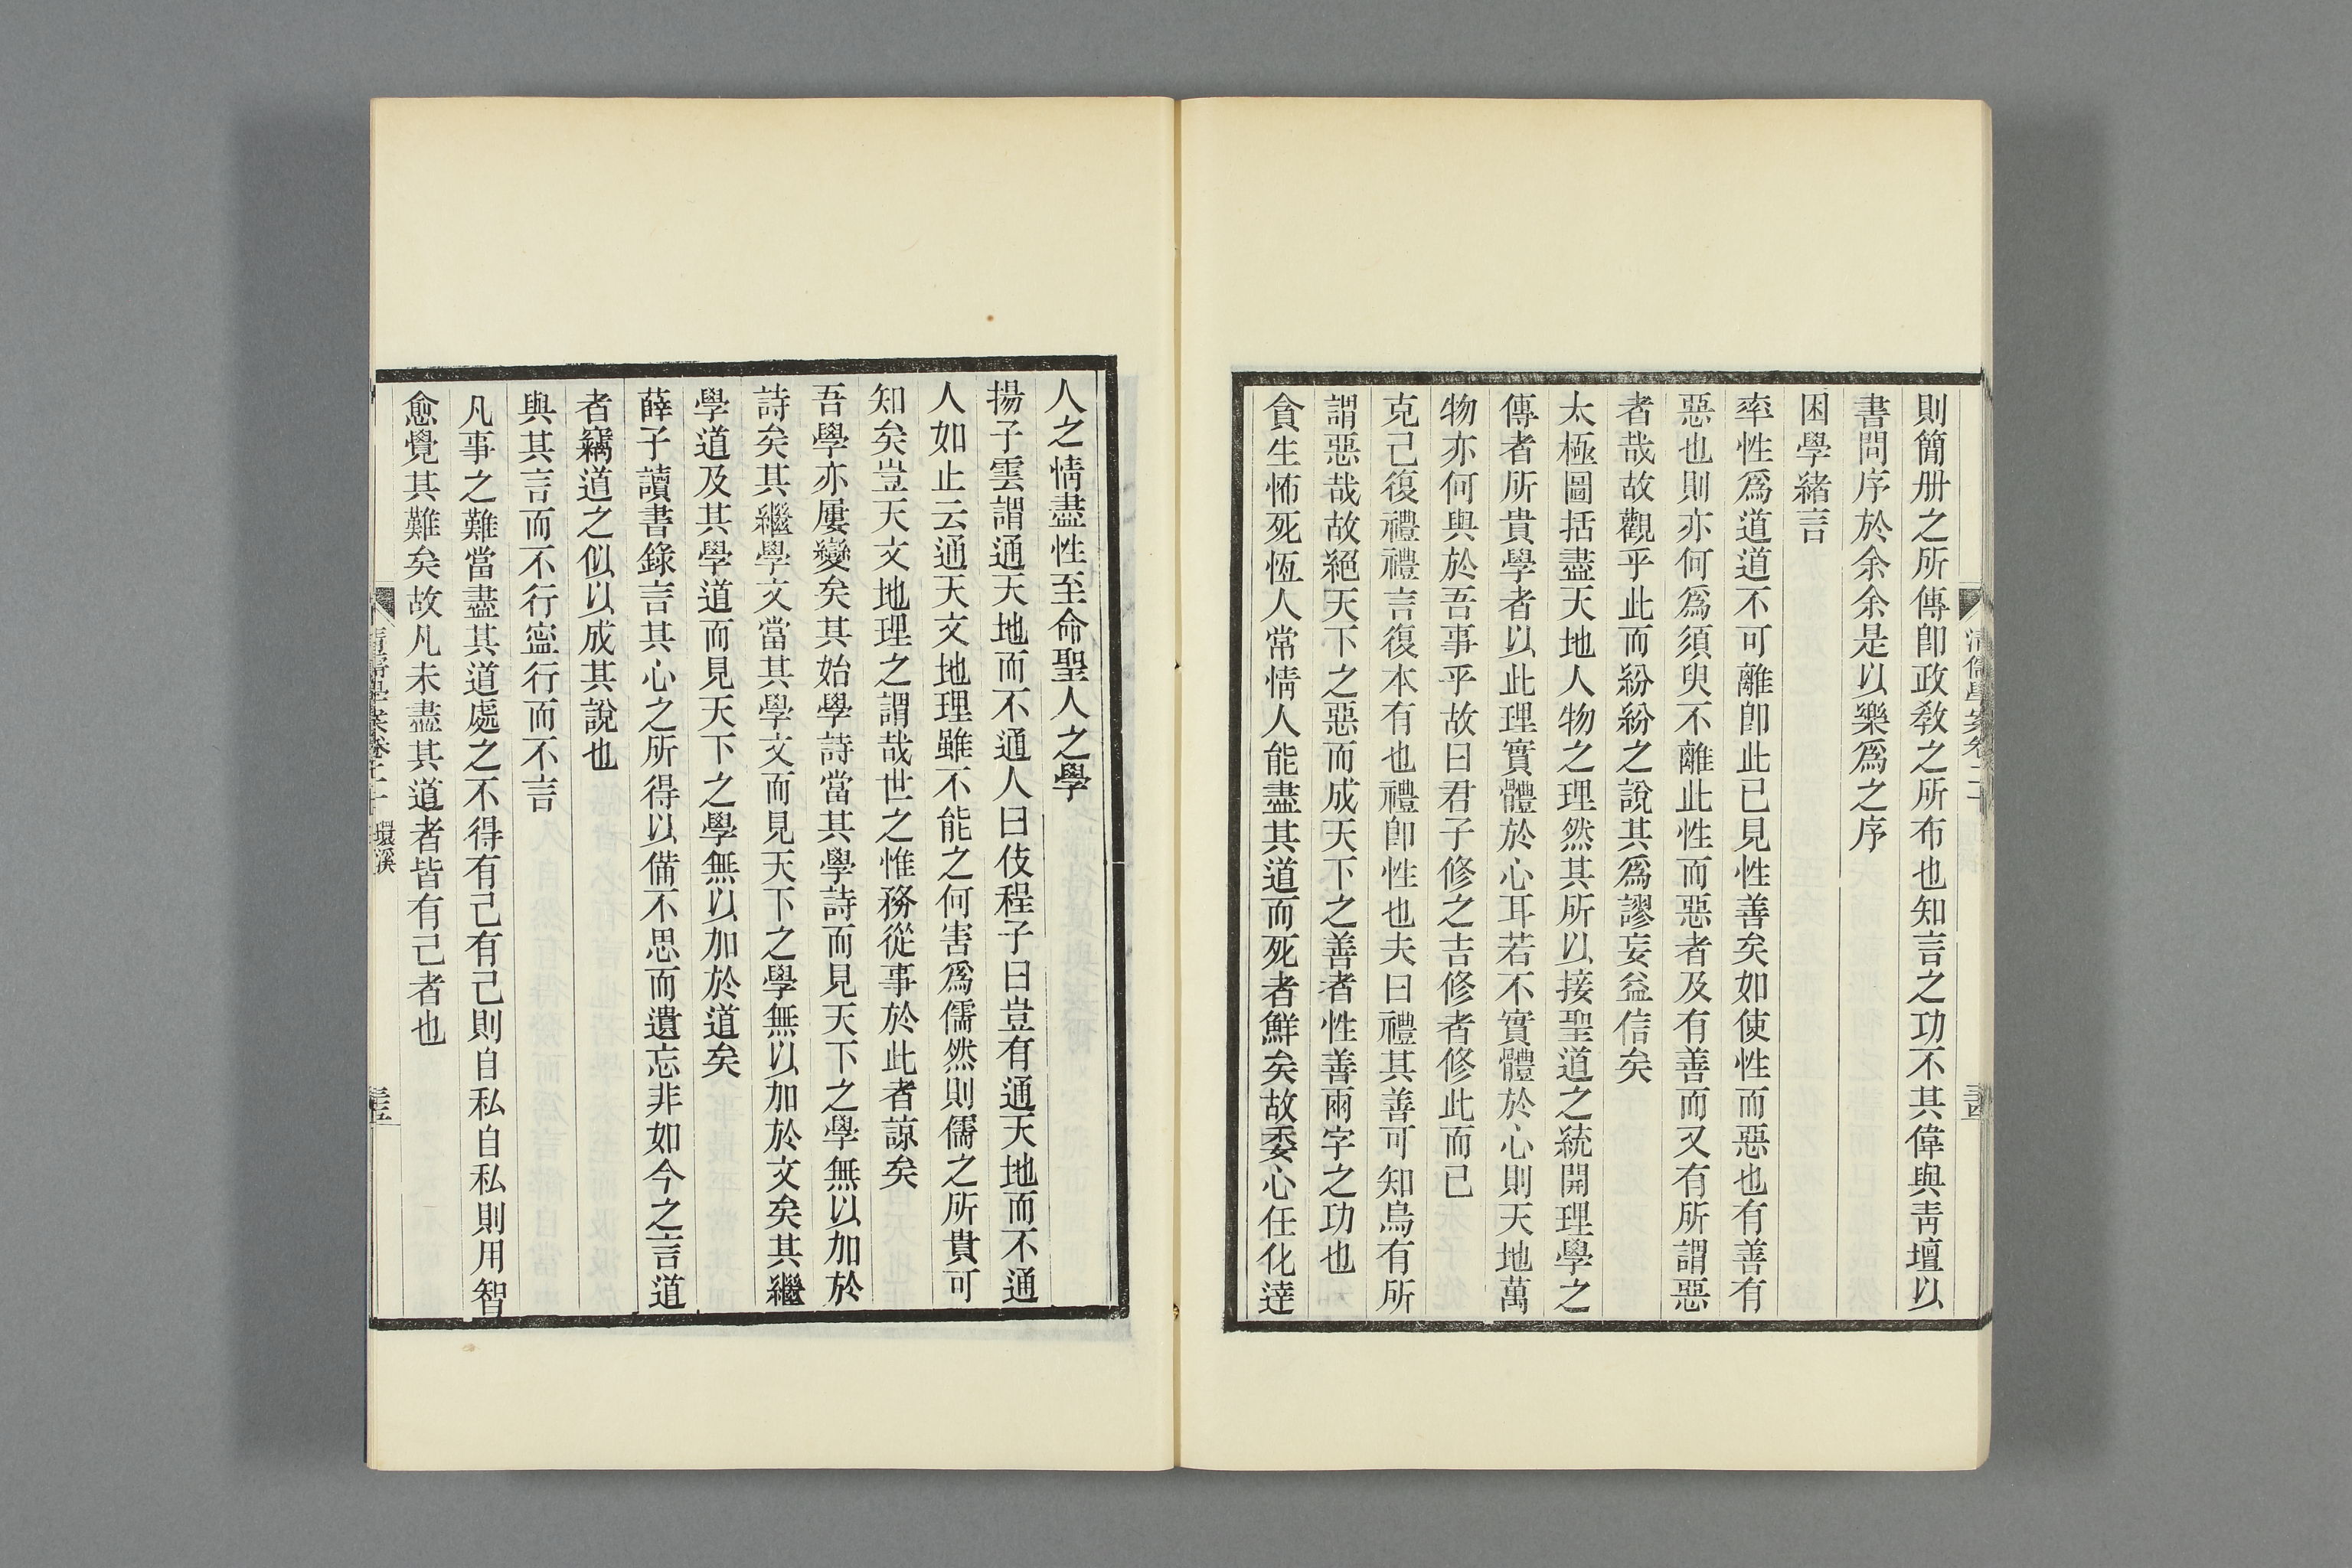 則簡册之所傳卽政敎之所布也知言之功不其偉與靑壇以
書問序於余余是以樂爲之序
困學緖言
率性爲道道不可離卽此已見性善矣如使性而惡也有善有
惡也則亦何爲須臾不離此性而惡者及有善而又有所謂惡
者哉故觀乎此而紛紛之說其爲謬妄益信矣
太極圖括盡天地人物之理然其所以接聖道之統開理學之
傳者所貴學者以此理實體於心耳若不實體於心則天地萬
物亦何與於吾事乎故曰君子修之吉修者修此而已
克己復禮禮言復本有也禮卽性也夫曰禮其善可知烏有所
謂惡哉故絕天下之惡而成天下之善者性善兩字之功也
貪生怖死恆人常情人能盡其道而死者鮮矣故委心任化達
清儒學案卷二十
三十四
人之情盡性至命聖人之學
揚子雲謂通天地而不通人曰伎程子曰豈有通天地而不通
人如止云通天文地理雖不能之何害爲儒然則儒之所貴可
知矣豈天文地理之謂哉世之惟務從事於此者諒矣
吾學亦屢變矣其始學詩當其學詩而見天下之學無以加於
詩矣其繼學文當其學文而見天下之學無以加於文矣其繼
學道及其學道而見天下之學無以加於道矣
薛子讀書錄言其心之所得以備不思而遺忘非如今之言道
者竊道之似以成其說也
與其言而不行寍行而不言
凡事之難當盡其道處之不得有己有己則自私自私則用智
愈覺其難矣故凡未盡其道者皆有己者也
清儒學案卷二十 環溪
三十五